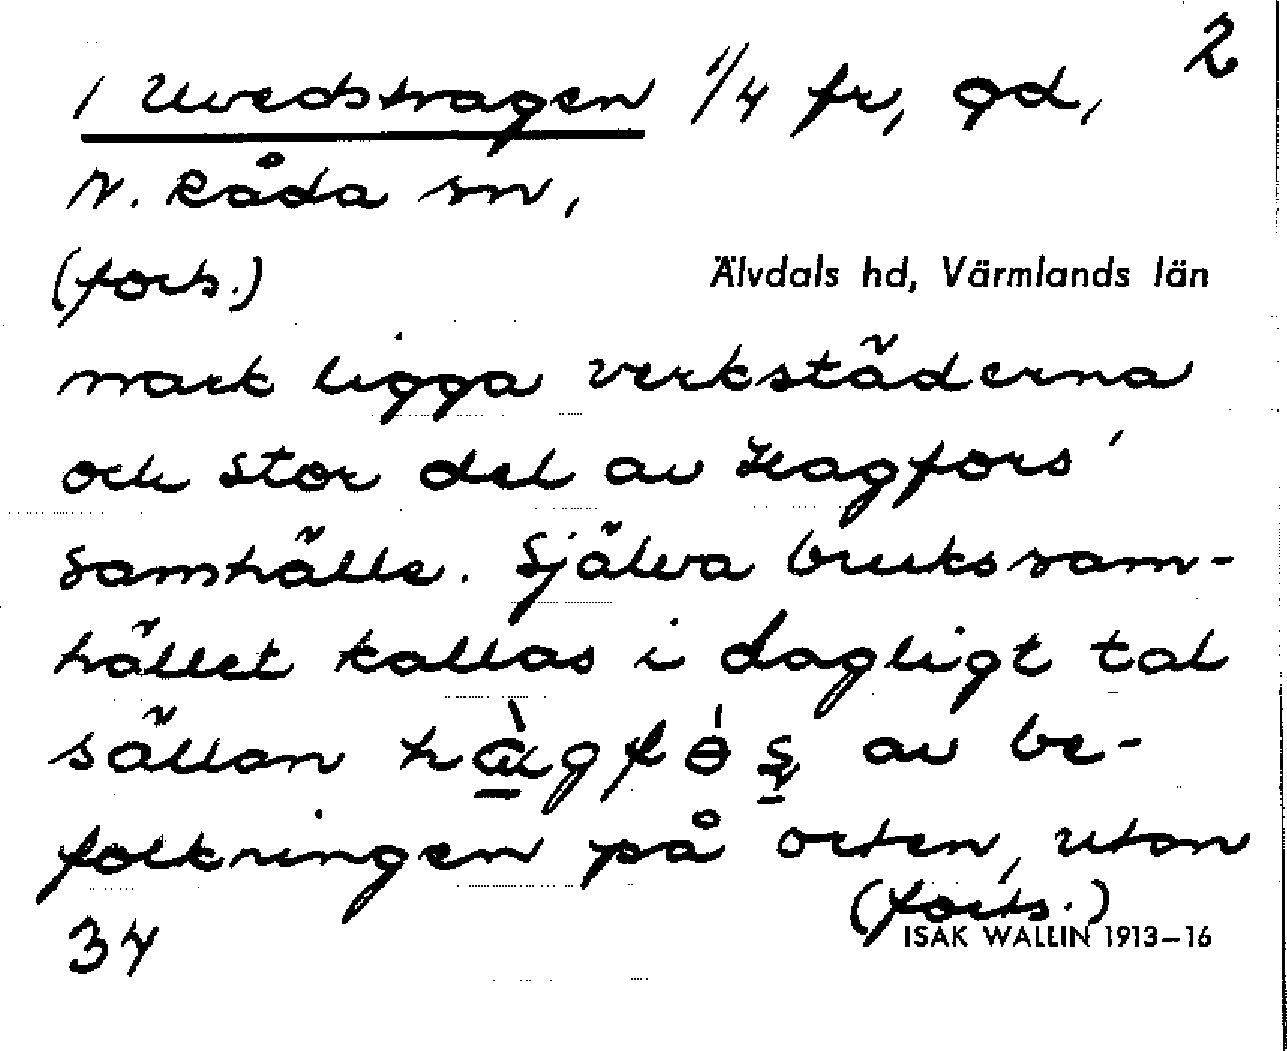 2
1 Uvedstragen 1/4 fr, gd,
N. Råda sn,
(forts.)
Älvdals hd, Värmlands län
mark ligga verkstäderna
och stor del av Hagfors'
samhälle. Själva brukssam-
hället kallas i dagligt tal
sällan av be-
folkningen på orten, utan
(forts.)
34
ISAK WALLIN 1913-16